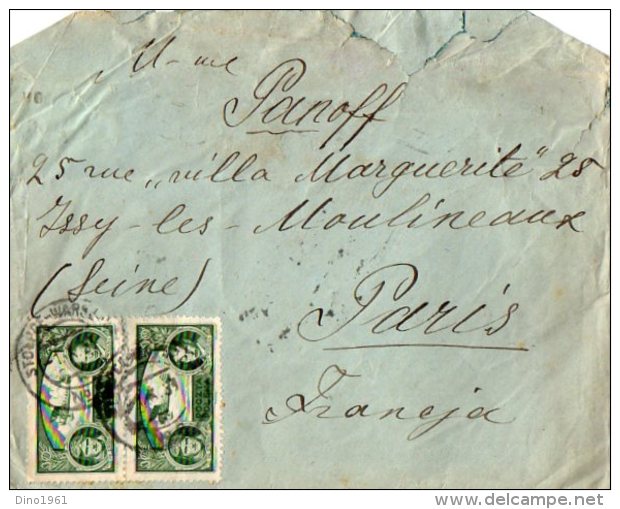 M-me
Panoff
25 rue „villa Marguerite" 25
Issy-les-Moulineaux
(Seine)
Paris
Francja
Dino1961